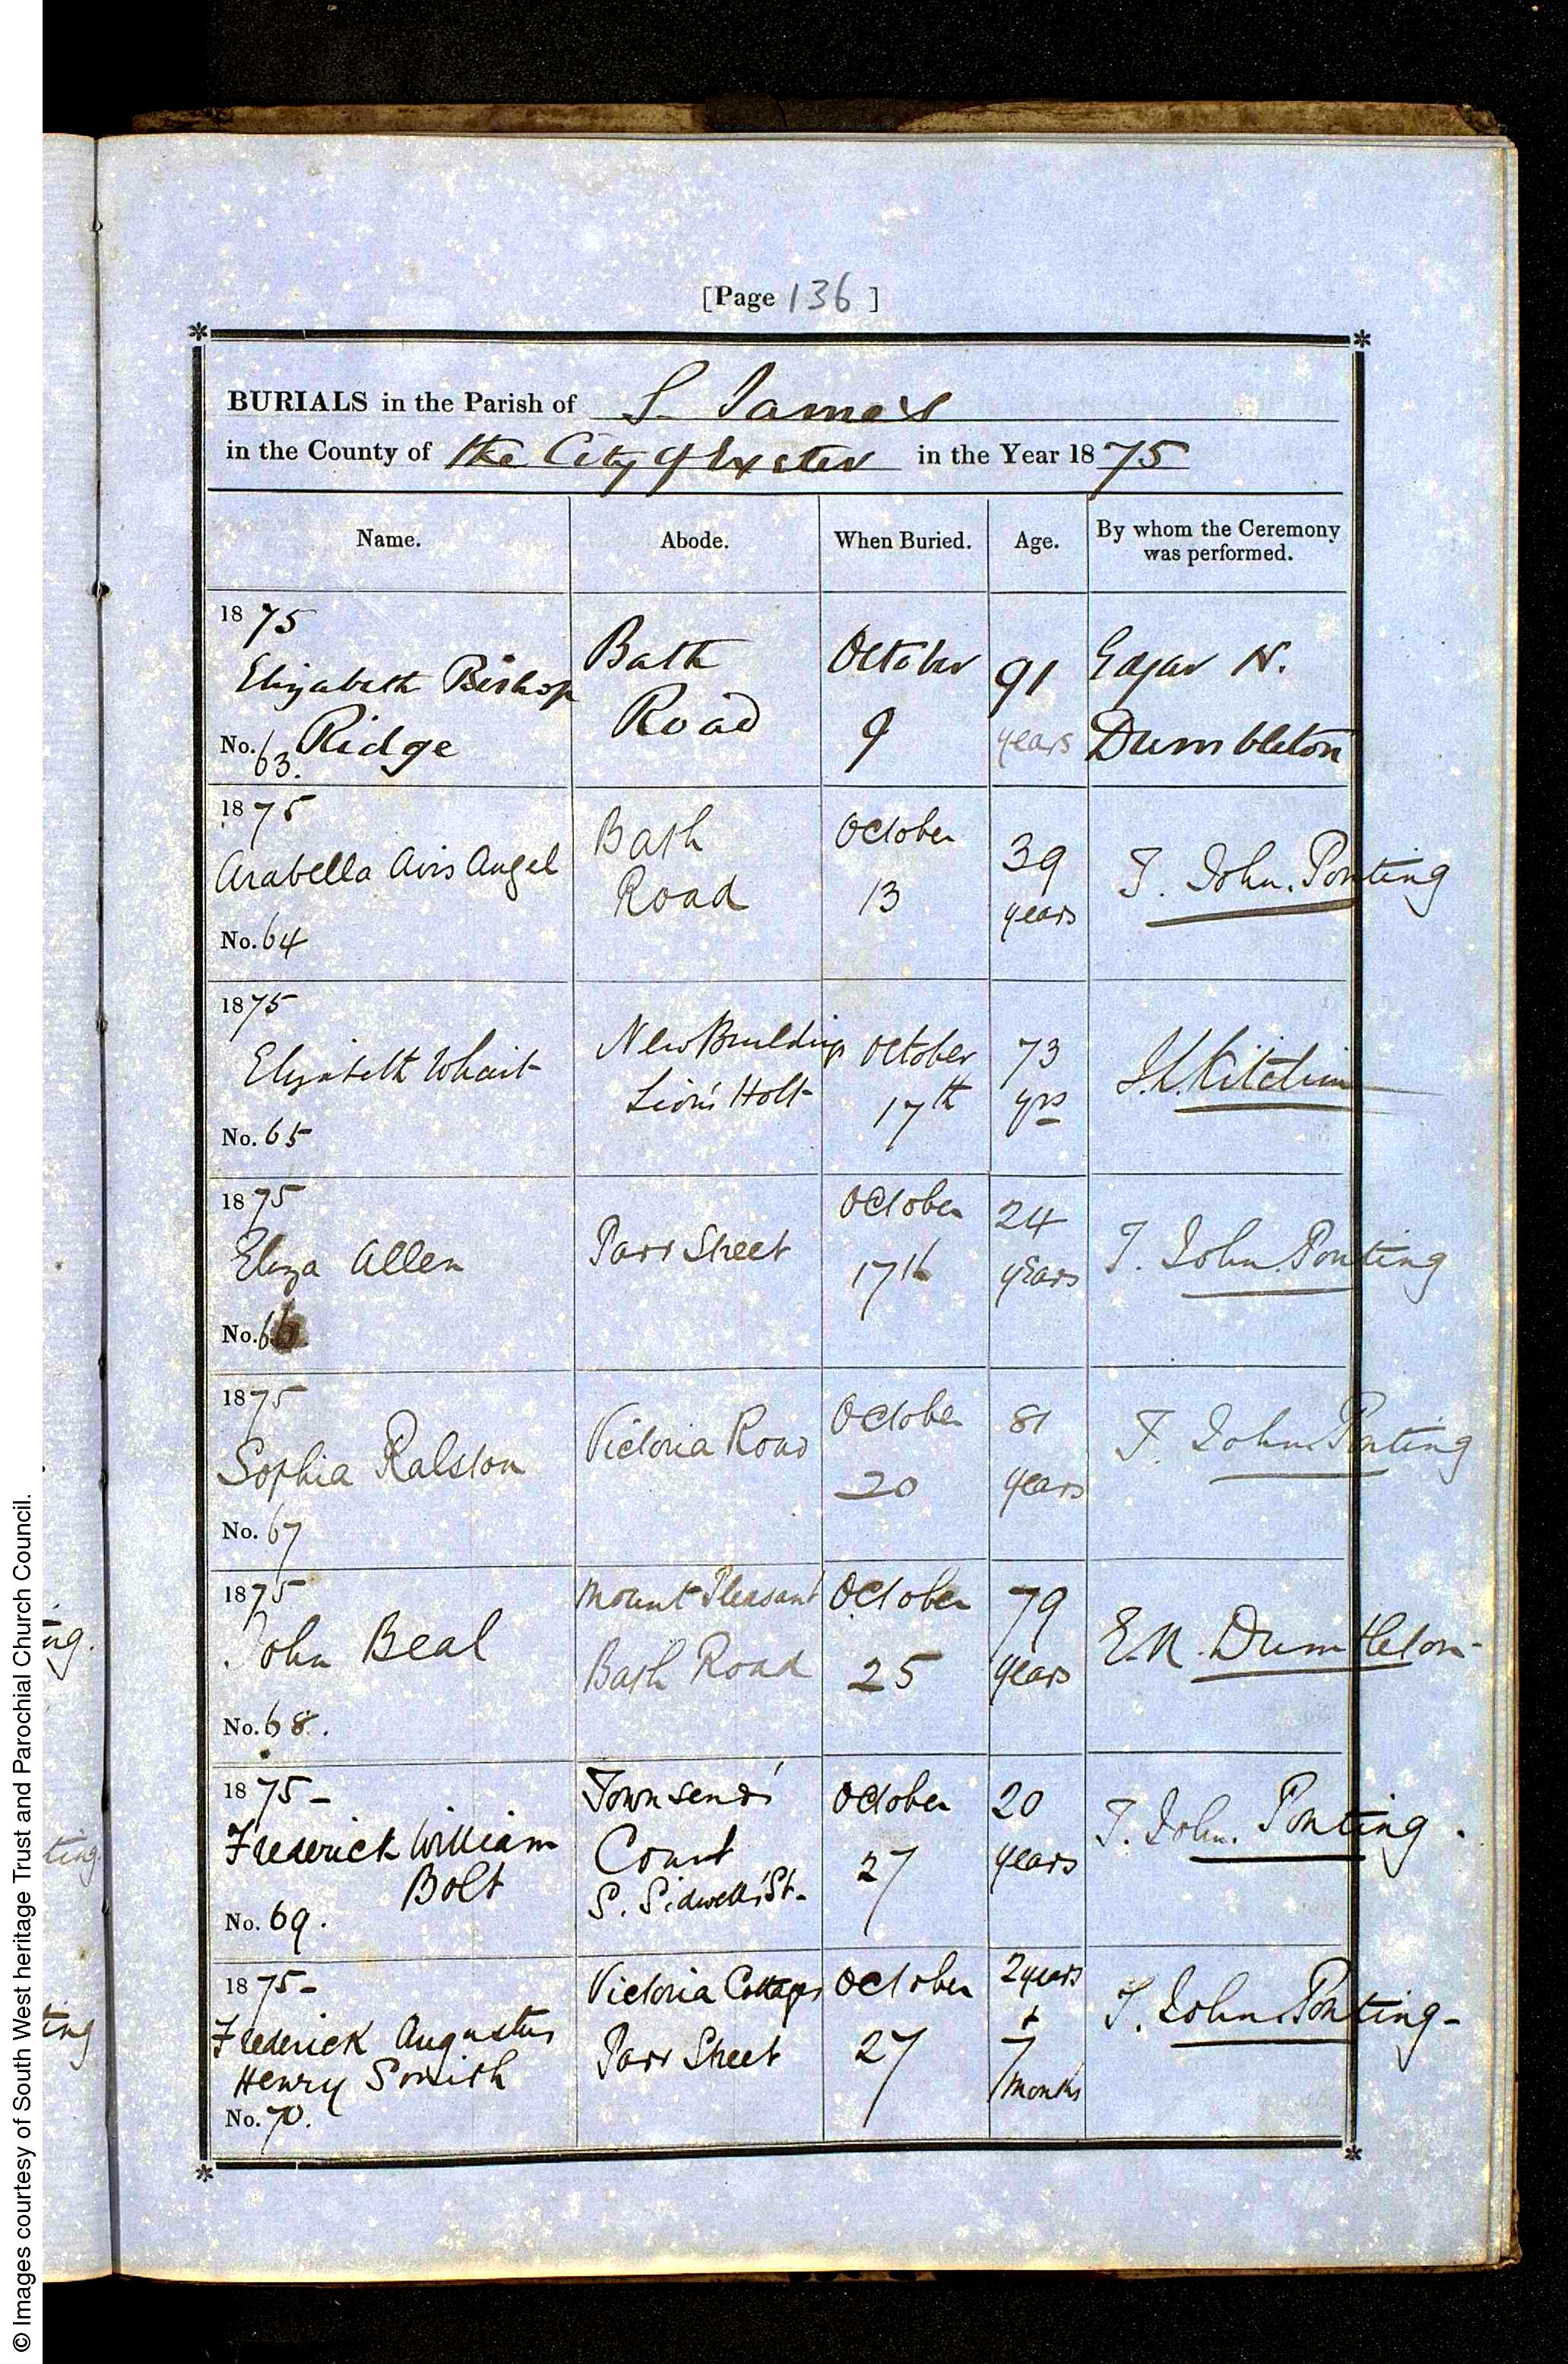 [Page 136 ]
BURIALS in the Parish of S. James
in the County of the City of Exeter in the Year 1875
Name. Abode. When Buried. Age. By whom the Ceremony was performed.
1875
Elizabeth Bishop
Ridge
No. 63.
Bath
Road
October
9
91
years
Edgar N.
Dumbleton
1875
Arabella Avis Angel
No. 64
Bath
Road
October
13
39
years
T. John. Ponting
1875
Elizabeth Whait
No. 65
New Buildings
Lion's Holt
October
17th
73
yrs
1875
Eliza Allen
No. 66
Parr Street
October
17th
24
years
T. John. Ponting
1875
Sophia Ralston
No. 67
Victoria Road
October
20
81
years
T. John Ponting
1875
John Beal
No. 68.
Mount Pleasant
Bath Road
October
25
79
years
E.N. Dumbleton-
1875-
Frederick William
Bolt
No. 69.
Townsend's
Court
S. Sidwell's St-
October
27
20
years
T. John. Ponting.
1875-
Frederick Augustus
Henry Smith
No. 70.
Victoria Cottages
Parr Street
October
27
2 years
+
7
months
T. John Ponting-
ng.
ting
ting
© Images courtesy of South West heritage Trust and Parochial Church Council.